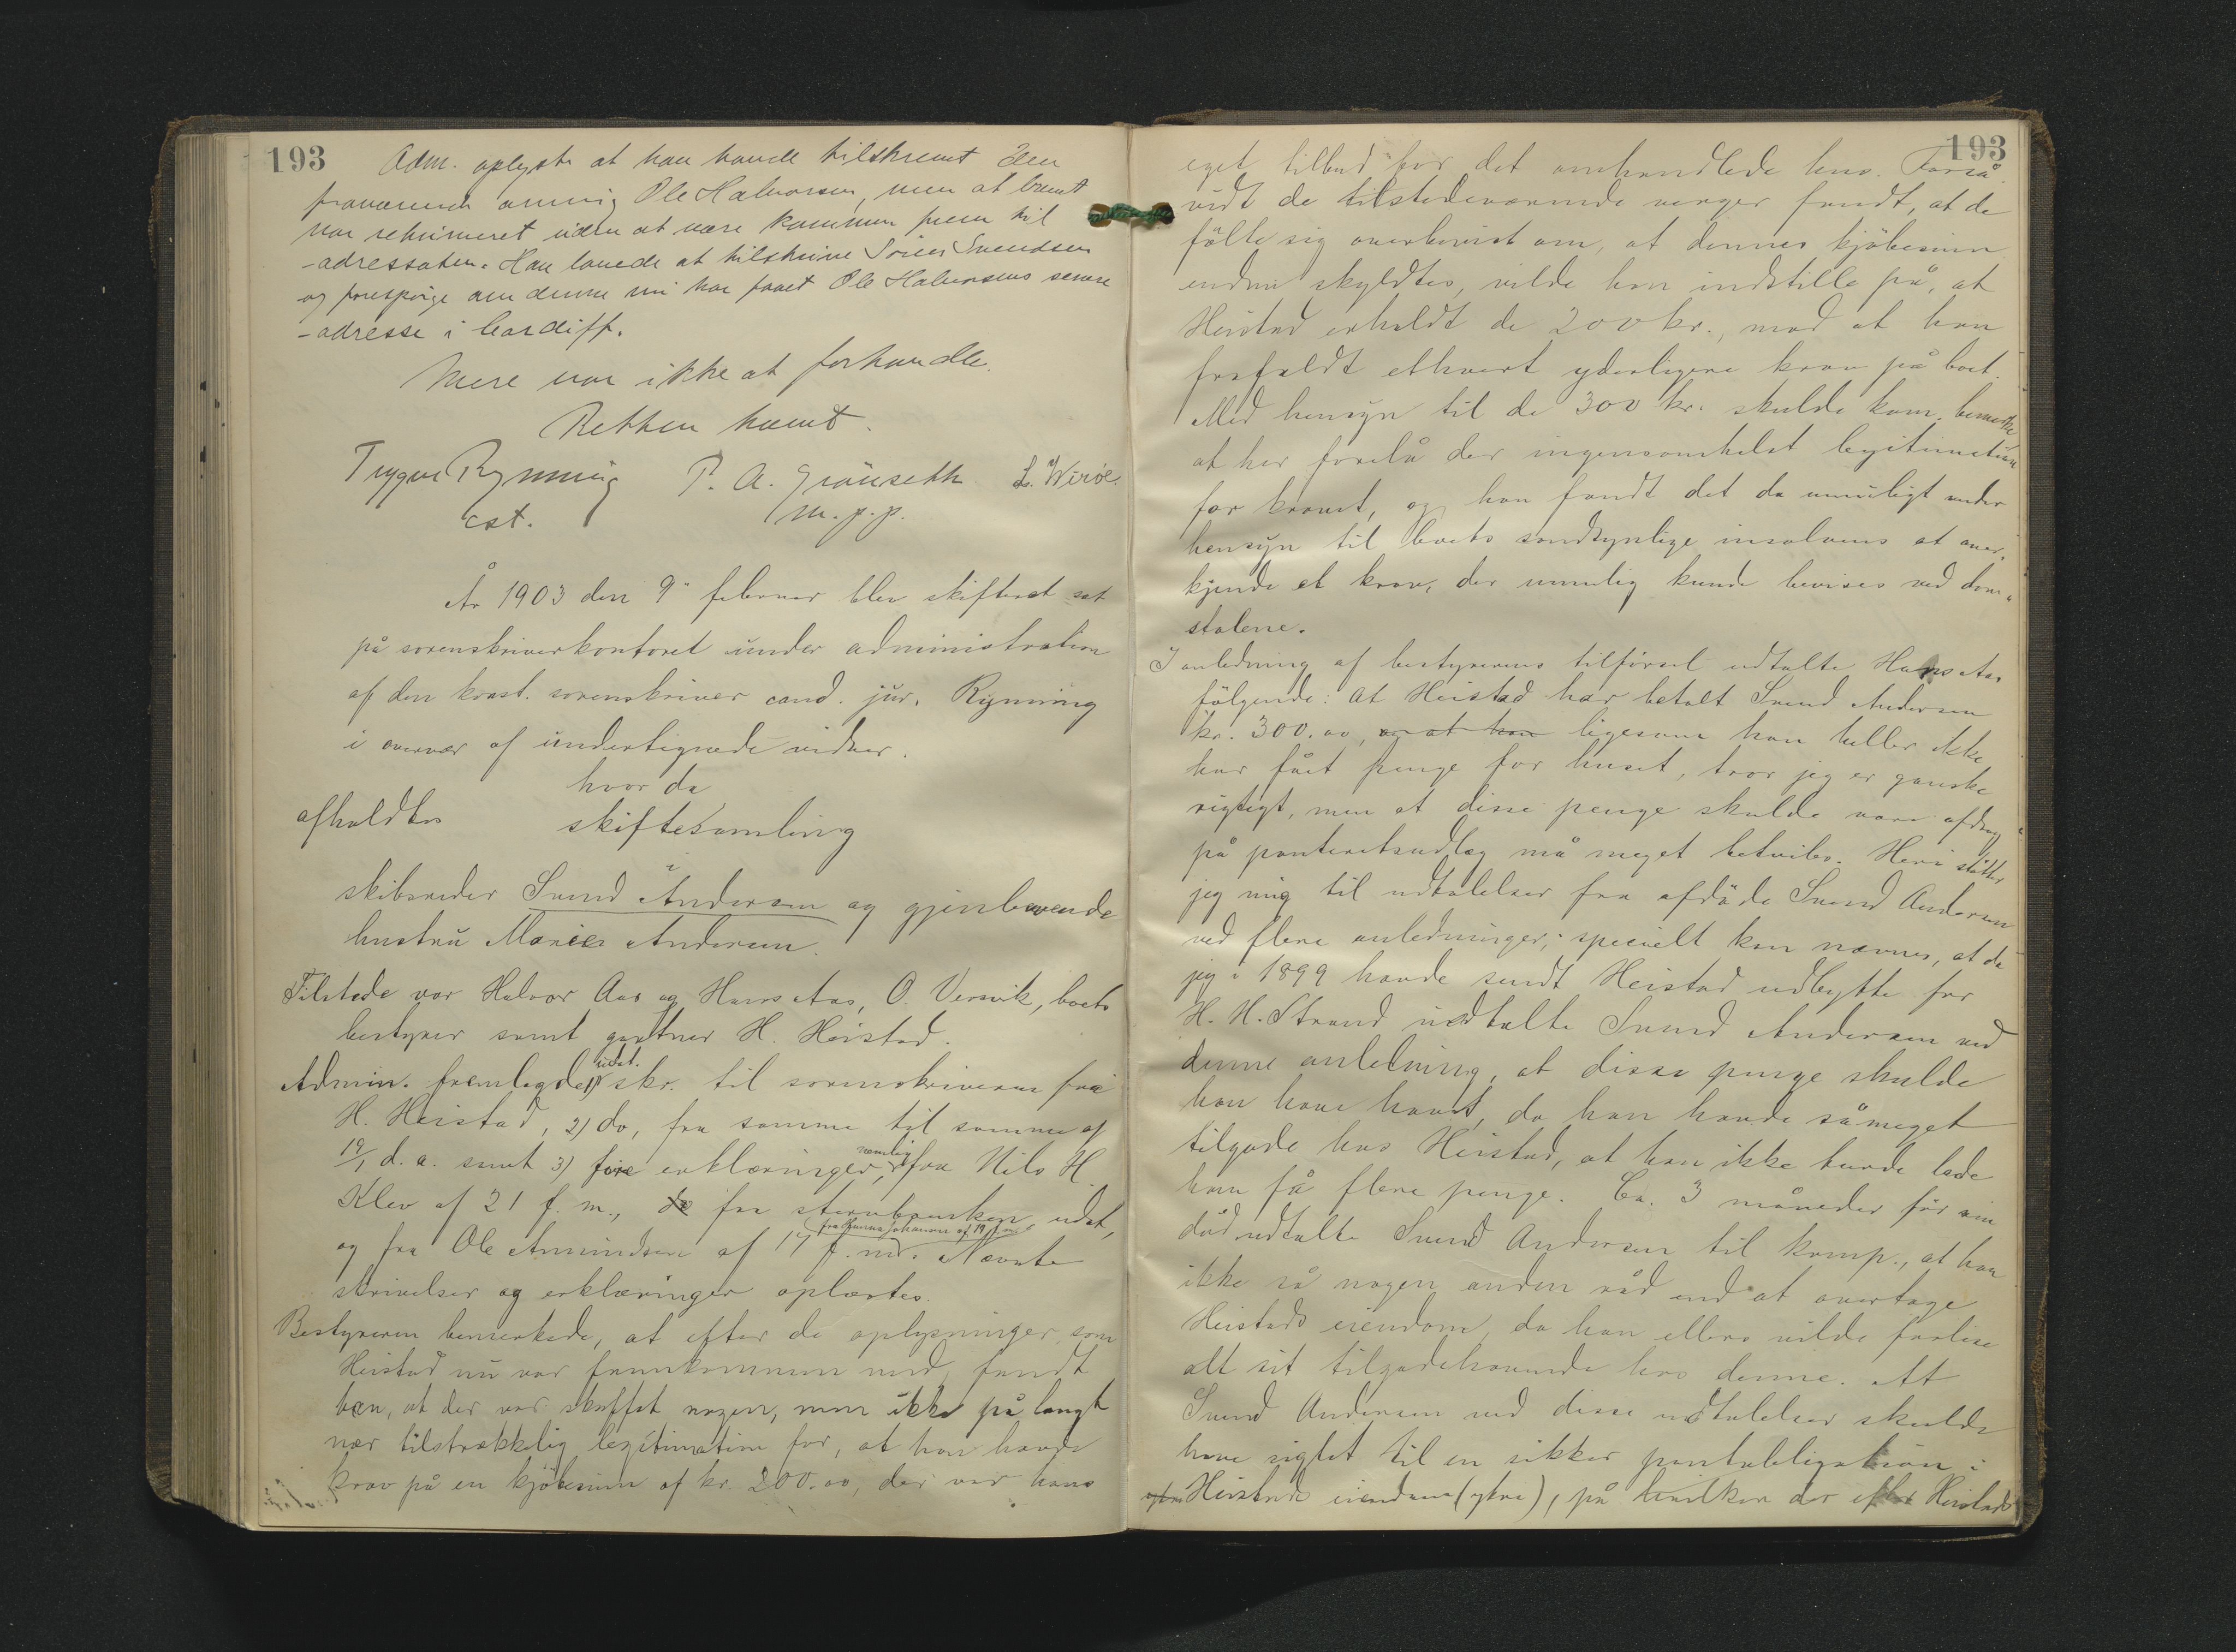 193
Adm. oplyste at han havde tilskrevet den
fraværende arving Ole Halvorsen, men at brevet
var returneret uden at være kommen frem til
-adressaten. Han lovede at tilskrive Svendsen
og forespørge om denne nu har faaet Ole Halvorsens senere
-adresse i Cardiff.
Mere var ikke at forhandle.
Retten hævet.
Trygve Rynning P. A. Grönseth L. Wiröe.
cst. m.p.p.
År 1903 den 9de februar blev skifteret sat
på sorenskriverkontoret under administration
af den konst. sorenskriver cand. jur. Rynning
i overvær af undertegnede vidner.
hvor da
afholdtes skiftesamling
i
skibsreder Svend Andersen og gjenlevende
hustru Maries Andersen.
Tilstede var Halvor Aas og Hans Aas, O. Versvik, boets
bestyrer samt gartner H. Heistad.
Admin. fremlagde 1) udat. skr. til sorenskriveren fra
H. Heistad, 2) do, fra samme til samme af
19/1 d. a. samt 3) fire erklæringer, nemlig fra Nils H.
Klev af 21 f. m., fra udat,
fra Hanna Johansen af 19 f. m.
og fra Ole Amundsen af 17 f. md. Nævnte
skrivelser og erklæringer oplæstes.
Bestyreren bemerkede, at efter de oplysninger, som
Heistad nu var fremkommen med, fandt
han, at der var skaffet nogen, men ikke på langt
nær tilstrækkelig legitimation for, at han havde
krav på en kjöbesum af kr. 200.00, der var hans
193
eget tilbud for det omhandlede hus. Forså-
vidt de tilstedeværende verger fandt, at de
fölte sig overbevist om, at dennes kjöbesum
endnu skyldtes, vilde han indstille på, at
Heistad erholdt de 200 kr., mod at han
frafaldt ethvert yderligere krav på boet.
Med hensyn til de 300 kr. skulde kom. bemerke,
at her forelå der ingensomhelst legitimation
for kravet, og han fandt det da umuligt under
hensyn til boets sandsynlige insolvens at aner-
kjende et krav, der umulig kunde bevises ved dom-
stolene.
I anledning af bestyrerens tilförsel udtalte Hans Aas
fölgende: At Heistad har betalt Svend Andersen
kr. 300.00, og at han ligesom han heller ikke
har fået penge for huset, tror jeg er ganske
rigtigt, men at disse penge skulde være afdrag
på panteretsudlæg må meget betviles. Heri stötter
jeg mig til udtalelser fra afdöde Svend Andersen
ved flere anledninger; specielt kan nævnes, at da
jeg i 1899 havde sendt Heistad udbytte for
H. H. Strand udtalte Svend Andersen ved
denne anledning, at disse penge skulde
han have havt, da han havde såmeget
tilgode hos Heistad, at han ikke burde lade
ham få flere penge. Ca. 3 måneder för sin
död udtalte Svend Andersen til komp., at han
ikke så nogen anden råd end at overtage
Heistads eiendom, da han ellers vilde forlise
alt sit tilgodehavende hos denne. At
Svend Andersen ved disse udtalelser skulde
have sigtet til en sikker panteobligation i
Heistads eiendom (ytre), på hvilken der efter Heistads